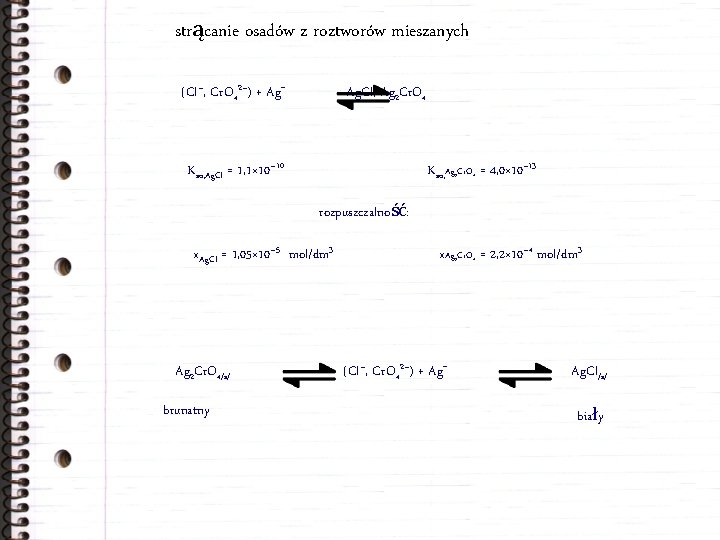 strącanie osadów z roztworów mieszanych
(Cl⁻, CrO₄²⁻) + Ag⁺ AgCl, Ag₂CrO₄
Kₛₒ,AgCl = 1,1×10⁻¹⁰ Kₛₒ,Ag₂CrO₄ = 4,0×10⁻¹³
rozpuszczalność:
xAgCl = 1,05×10⁻⁵ mol/dm³ xAg₂CrO₄ = 2,2×10⁻⁴ mol/dm³
Ag₂CrO₄/s/ (Cl⁻, CrO₄²⁻) + Ag⁺ AgCl/s/
brunatny biały